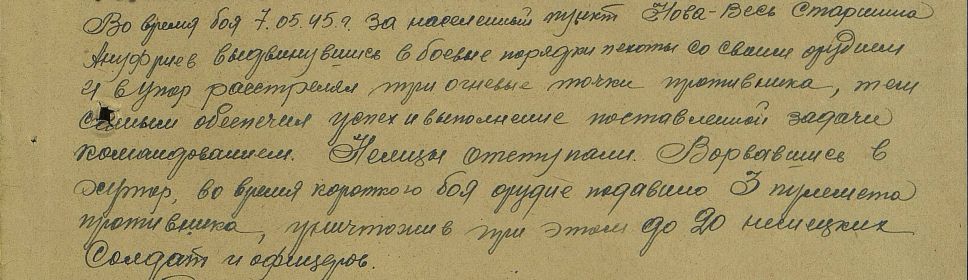 Во время боя 7.05.45 г. за населенный пункт Нова-Весь Старшина
Ануфриев выдвинувшись в боевые порядки пехоты со своим орудием
и в упор расстрелял три огневые точки противника, тем
самым обеспечил успех и выполнение поставленной задачи
командованием. Немцы отступали. Ворвавшись в
хутор, во время короткого боя орудие подавило 3 пулемета
противника, уничтожив при этом до 20 немецких
солдат и офицеров.